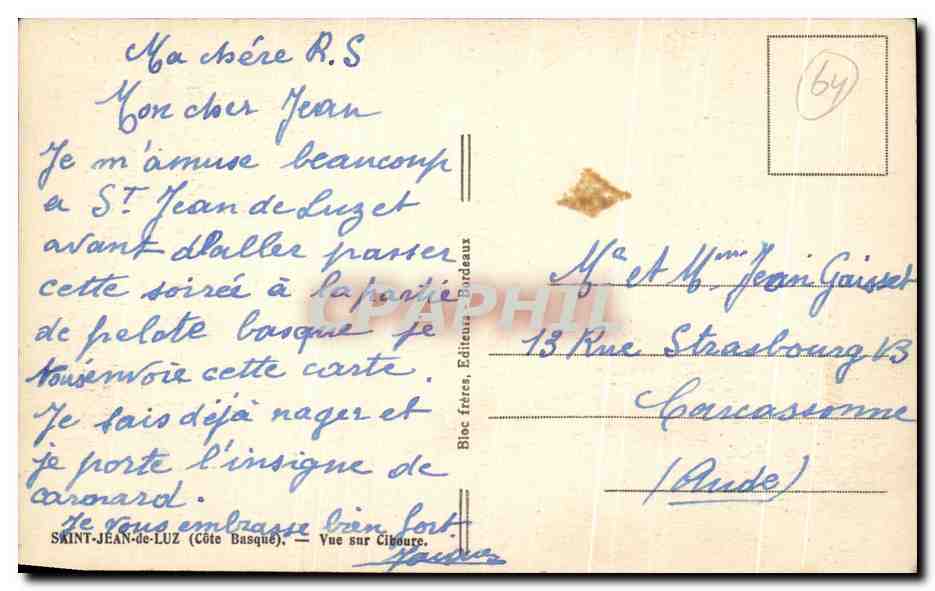 Ma chére R.S
Mon cher Jean
Je m'amuse beaucoup
a St Jean de Luz et
avant d'aller passer
cette soirée à la partie
de pelote basque je
vous envoie cette carte.
Je sais déjà nager et
je porte l'insigne de
canard.
Je vous embrasse bien fort
SAINT-JEAN-de-LUZ (Côte Basque). — Vue sur Ciboure.
Bloc frères, Editeurs - Bordeaux
CPAPHIL
64
Mr et Mme Jean Gaisset
13 Rue Strasbourg 13
Carcassonne
(Aude)